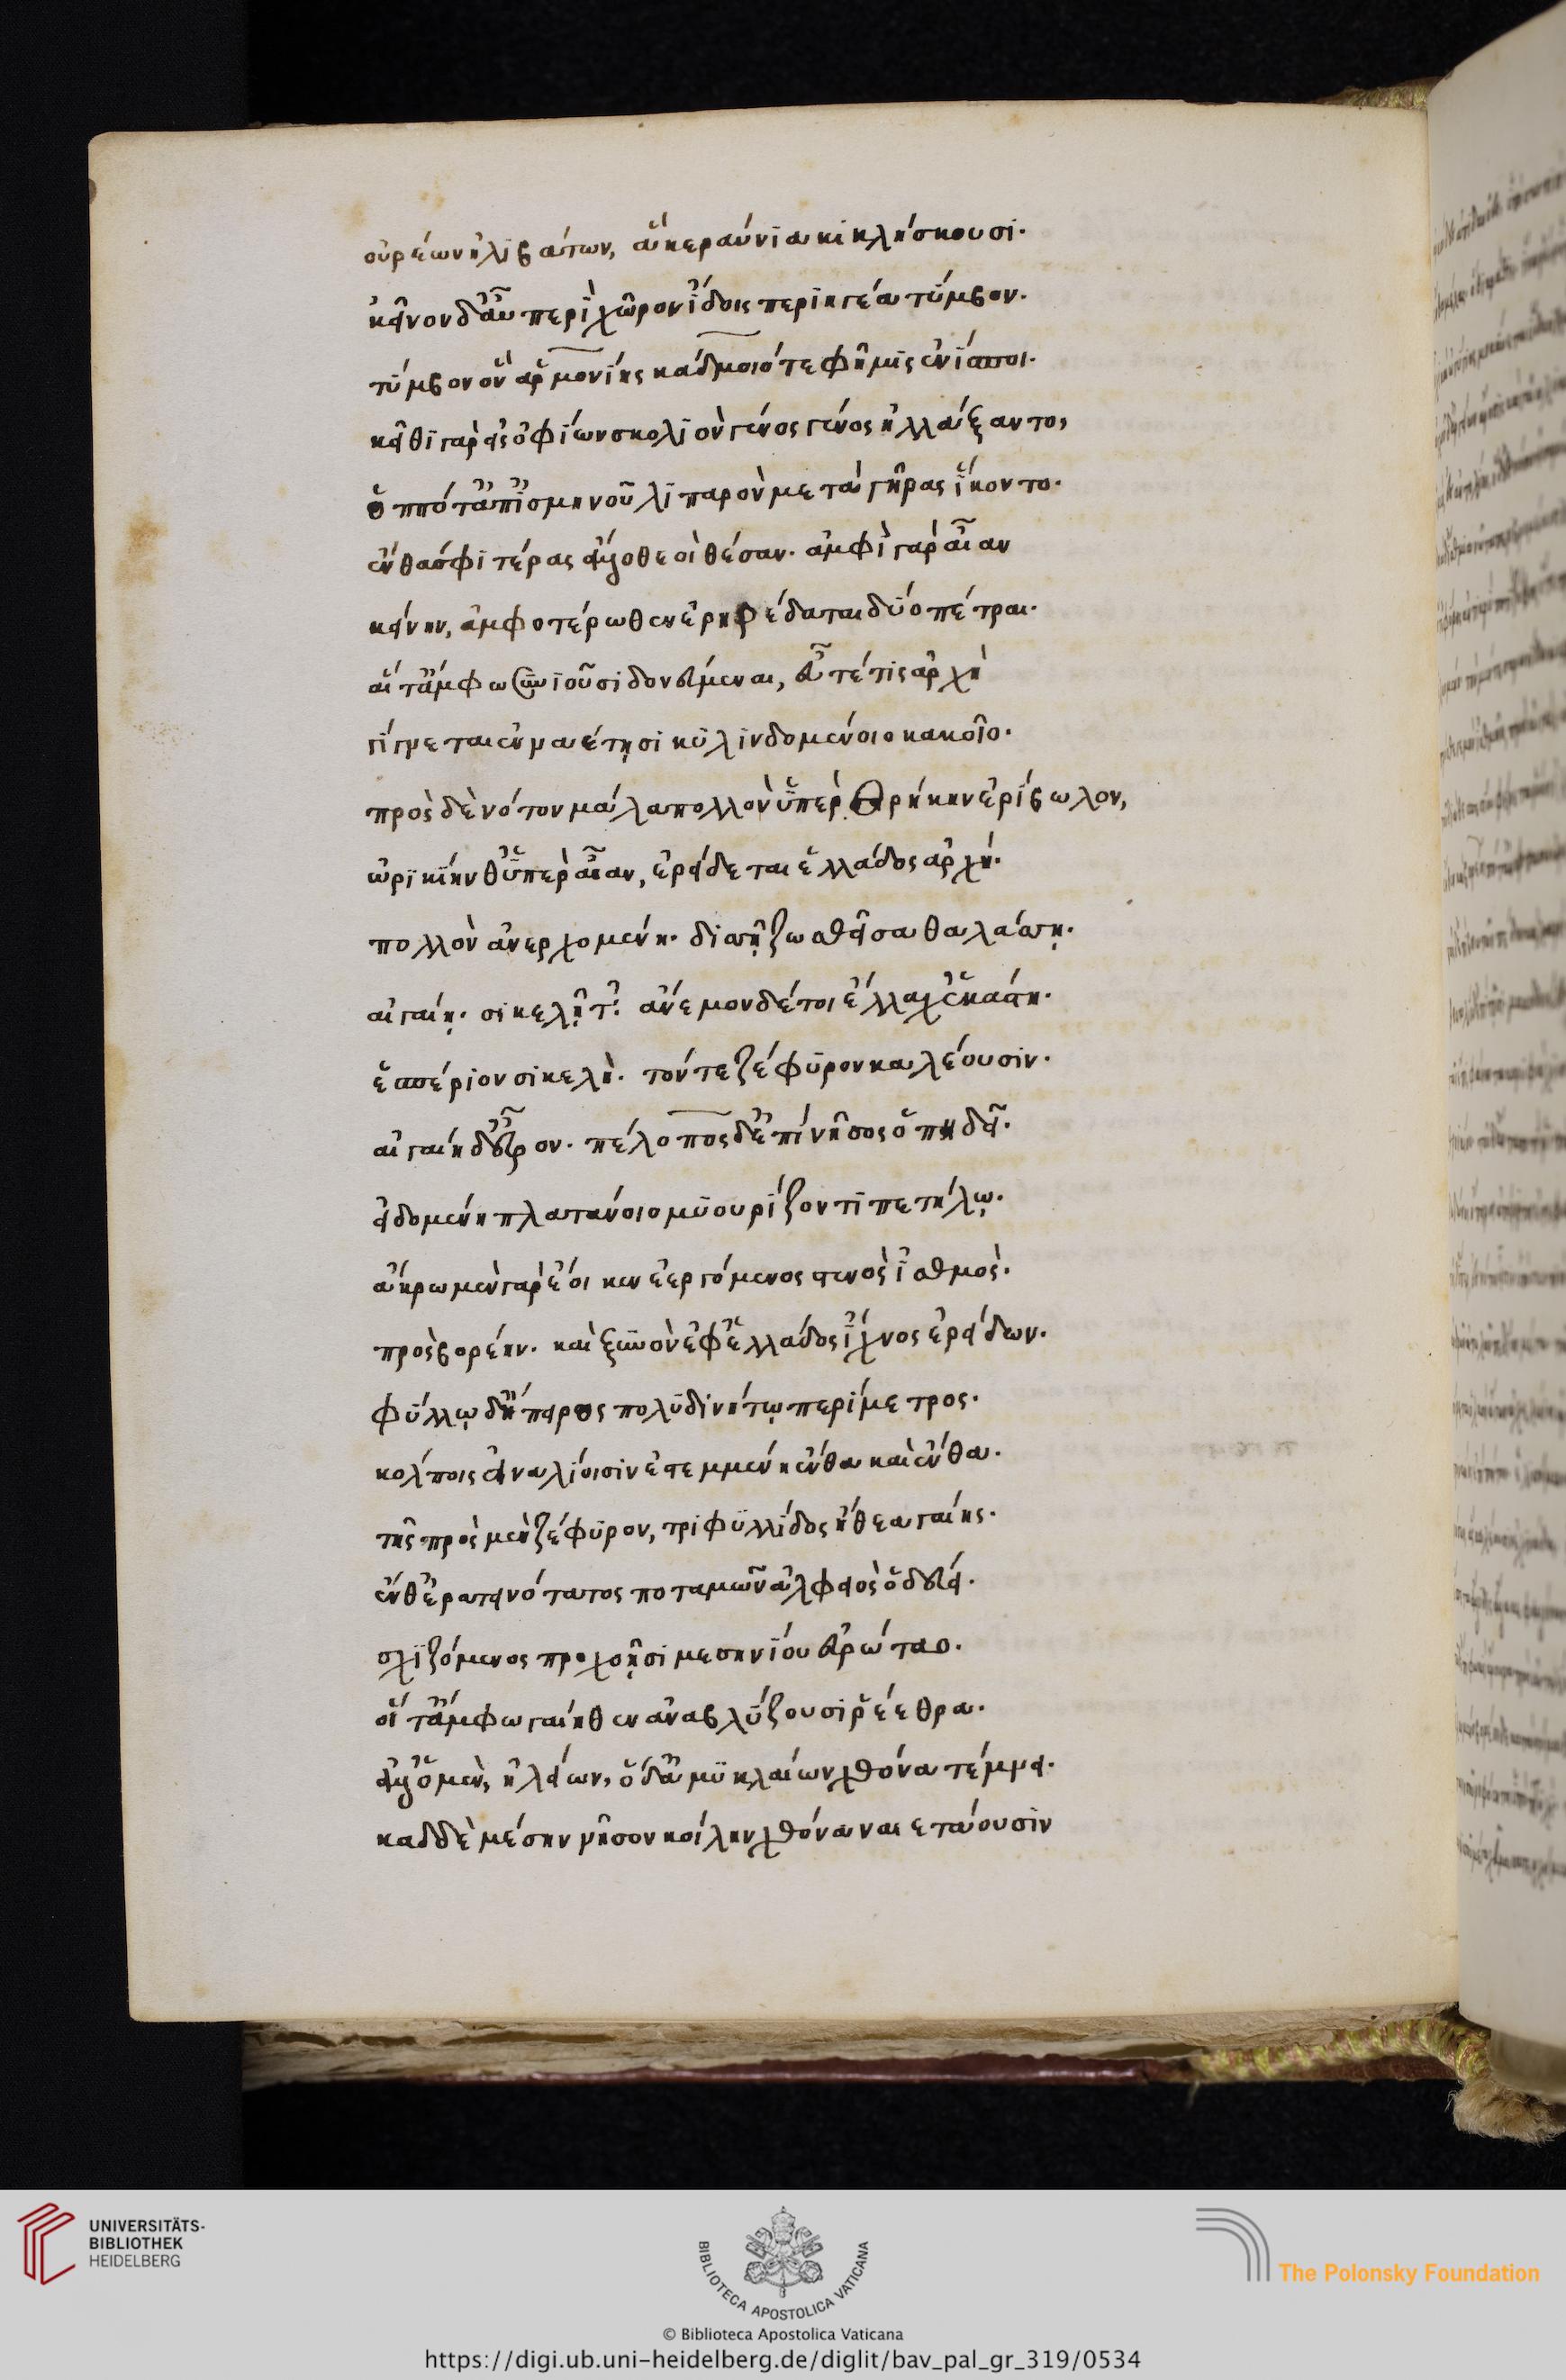 οὐρέων ἠλιβάτων, ἃ κεραύνια κικλήσκουσι.
κεῖνον δ' αὖ περὶ χῶρον ἴδοις τύμβον.
τύμβον ὃν ἁρμονίης κάδμοιό τε φῆμις ἐνίσποι.
κεῖθι γὰρ εἰς ὀφίων σκολιὸν γένος γένος ἠλλάξαντο,
ὁππότ' ἀπ' ἰσμηνοῦ λιπαρὸν μετὰ γῆρας ἵκοντο.
ἔνθα σφι τέρας ἄλλο θεοὶ θέσαν. ἀμφὶ γὰρ αἶαν
κείνην, ἀμφοτέρωθεν ἐρηρέδαται δύο πέτραι.
αἵ τ' ἄμφω ξυνιοῦσι δονεύμεναι, εὖτέ τις ἀρχὴ
γίγνεται ἐνναέτῃσι κυλινδομένοιο κακοῖο.
πρὸς δὲ νότον μάλα πολλὸν ὕπερ Θρήκην ἐρίβωλον,
ὠρικίην θ' ὕπερ αἶαν, ἐρείδεται ἑλλάδος ἀρχή.
πολλὸν ἀνερχομένη. δισσῇ ζωσθεῖσα θαλάσσῃ.
αἰγαίῃ. σικελῇ τ'. ἄνεμον δέ τοι ἔλλαχ' ἑκάστη.
ἑσπέριον σικελὴ. τόν τε ζέφυρον καλέουσιν.
αἰγαίη δ' εὖρον. πέλοπος δ' ἐπὶ νῆσος ὀπηδεῖ.
εἰδομένη πλατάνοιο μυουρίζοντι πετήλῳ.
ἄκρῳ μὲν γὰρ ἔοικεν ἐεργόμενος στενὸς ἰσθμὸς.
πρὸς βορέην. καὶ ξυνὸν ἐφ' ἑλλάδος ἴχνος ἐρείδων.
φύλλῳ δ' ἤπειρος πολυδινήτῳ περίμετρος.
κόλποις εἰναλίοισιν ἐστεμμένη ἔνθα καὶ ἔνθα.
τῆς πρὸς μὲν ζέφυρον, τριφυλλίδος ἤθεα γαίης.
ἔνθ' ἐρατεινότατος ποταμῶν ἀλφειὸς ὁδεύει.
σχιζόμενος προχοῇσι μεσηνίου εὐρώταο.
οἵ τ' ἄμφω γαίηθεν ἀναβλύζουσι ῥέεθρα.
ἀλλ' ὁ μὲν, ἠλείων, ὁ δ' ἀμυκλαίων χθόνα τέμνει.
καδδὲ μέσην νῆσον κοίλην χθόνα ναιετάουσιν
UNIVERSITÄTS-
BIBLIOTHEK
HEIDELBERG
BIBLIOTECA APOSTOLICA VATICANA
The Polonsky Foundation
© Biblioteca Apostolica Vaticana
https://digi.ub.uni-heidelberg.de/diglit/bav_pal_gr_319/0534